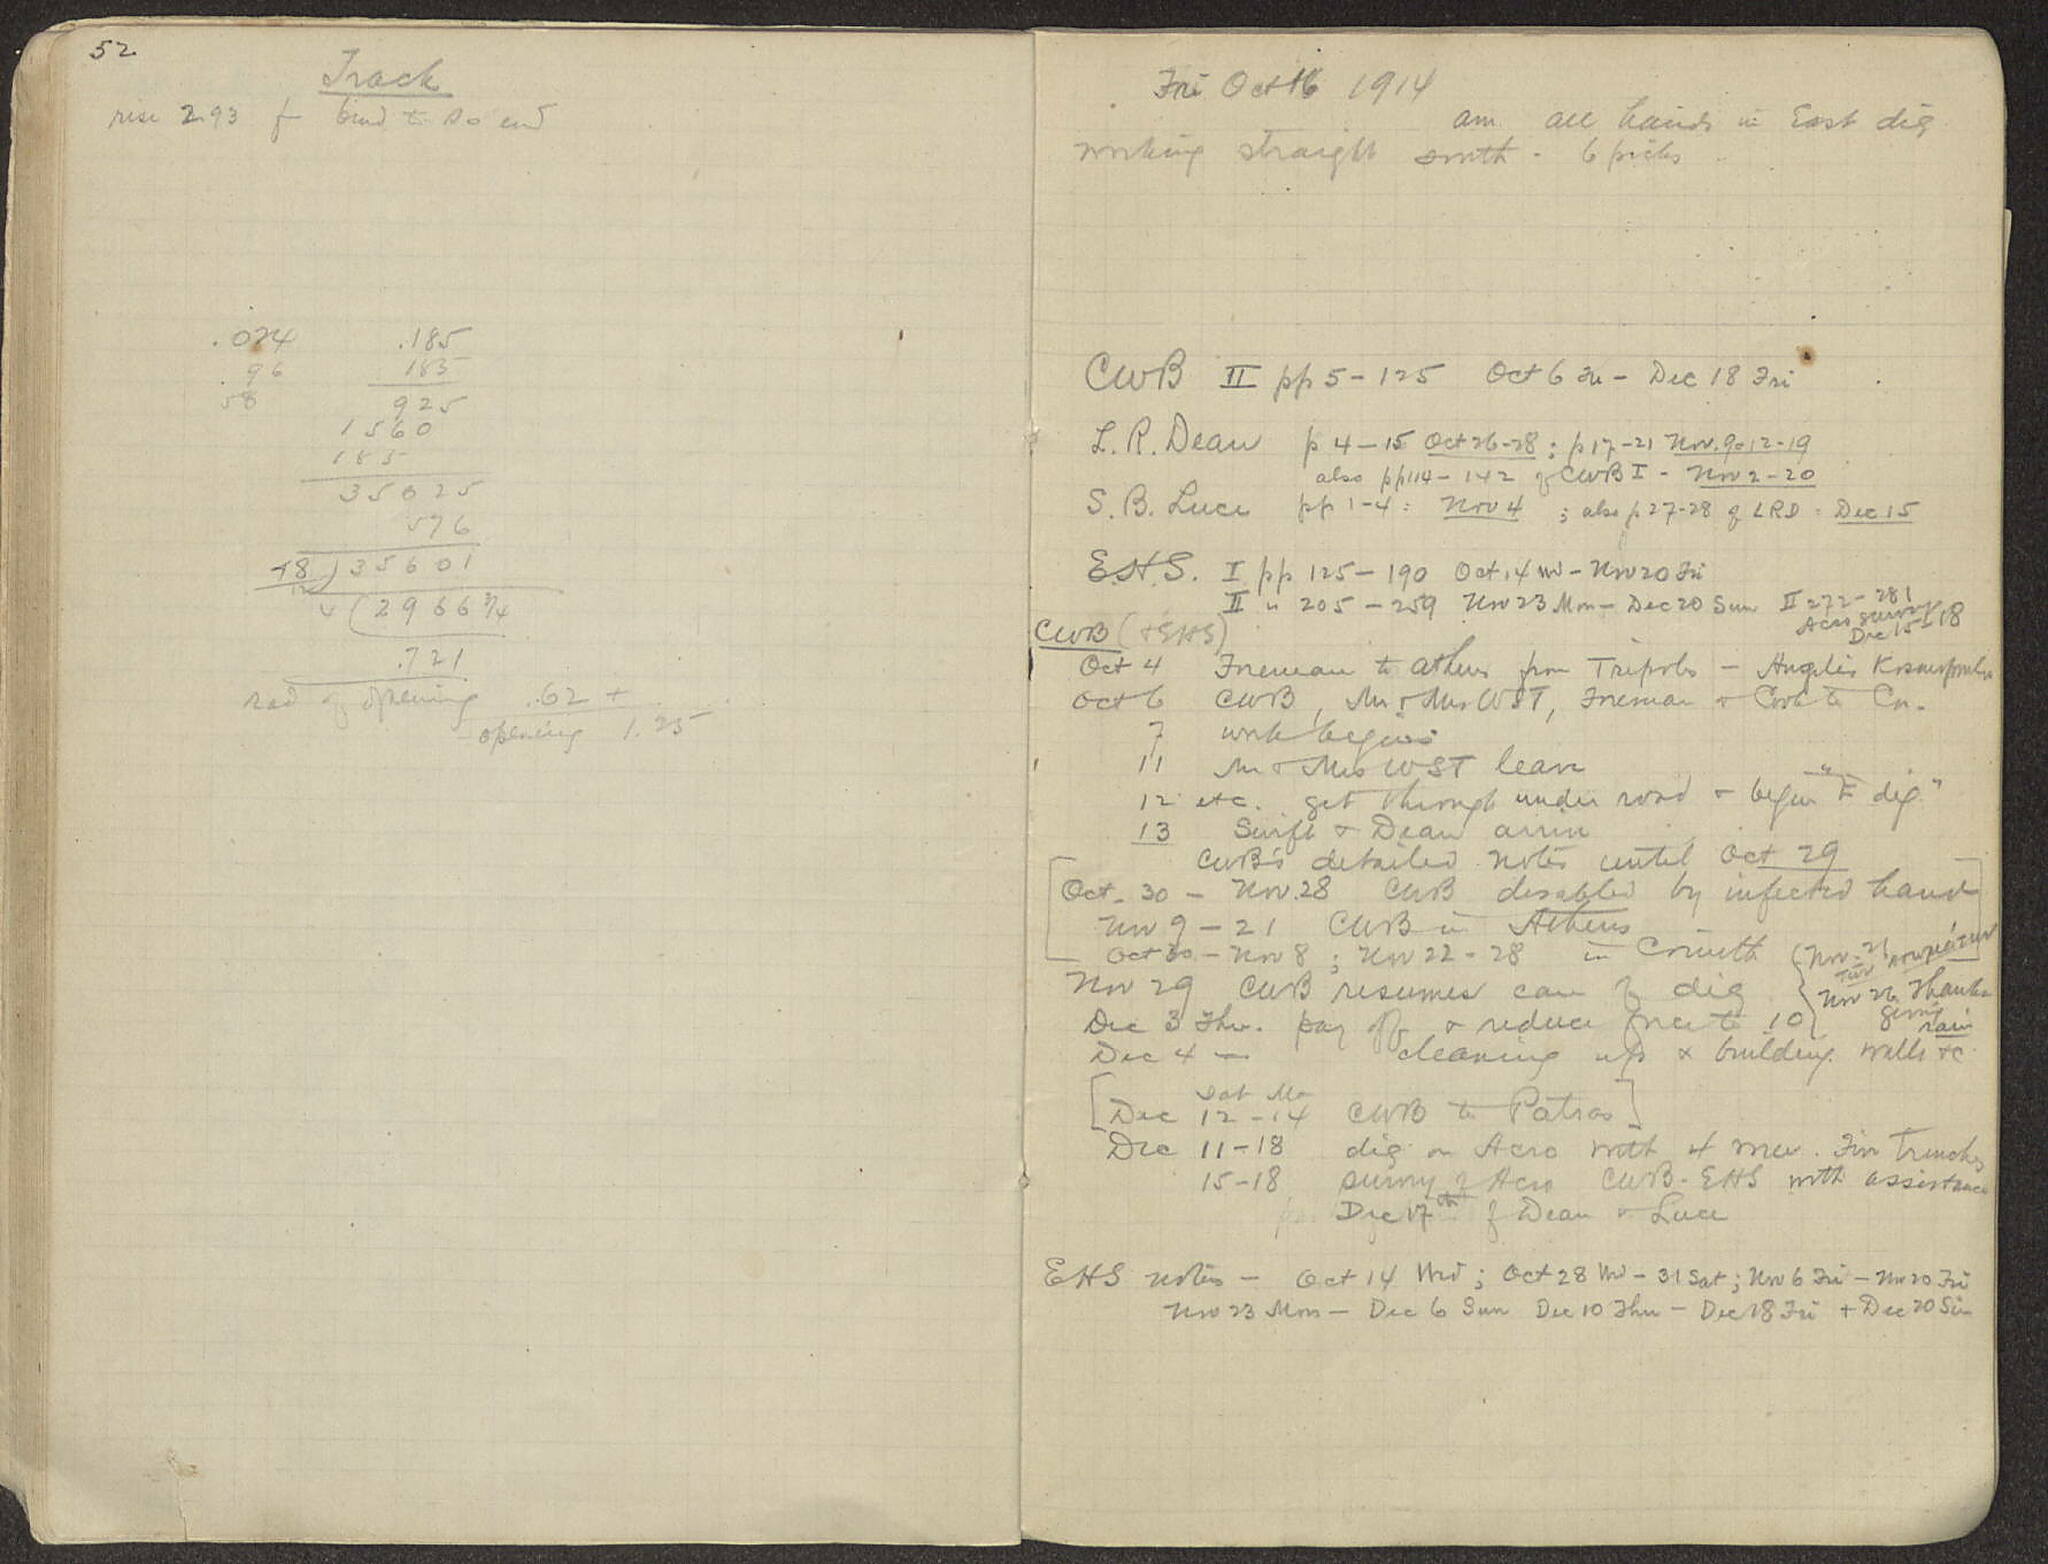 52
Track
rise 2.93 f bend to So end
.024 .185
.96 185
58 925
1560
185
35025
576
35601
2966 3/4
.721
rad of opening .62 +
opening 1.25
Fri Oct 16 1914
am all hands in East dig
working straight south - 6 picks
CWB II pp 5 - 125 Oct 6 Tu - Dec 18 Fri
L. R. Dean p 4 - 15 Oct 26-28 ; p 17-21 Nov. 9 12-19
also pp 114 - 142 of CWB I - Nov 2-20
S. B. Luce pp 1-4 : Nov 4 ; also p 27-28 of LRD : Dec 15
E.H.S. I pp 125 - 190 Oct 14 Wd - Nov 20 Fri
II " 205 - 259 Nov 23 Mon - Dec 20 Sun II 272 - 281
Acro survey
Dec 15-18
CWB (+ EHS)
Oct 4 Foreman to Athens from Tripolis - Angelis Kosmopoulos
Oct 6 CWB, Mr & Mrs WST, Foreman & Cook to Co.
7 work begins
11 Mr & Mrs WST leave
12 etc. get through under road & begin "E dig"
13 Swift & Dean arrive
CWB's detailed notes until Oct 29
Oct. 30 - Nov. 28 CWB disabled by infected hand
Nov 9 - 21 CWB in Athens
Oct 30 - Nov 8 ; Nov 22 - 28 in Corinth
Nov. 21
Nov 29 CWB resumes care of dig
Nov 26 Thanksgiving
rain
Dec 3 Thu. pay off & reduce force to 10
Dec 4 - cleaning up & building walls &c
Sat Mo
[Dec 12 - 14 CWB to Patras]
Dec 11-18 dig on Acro with 4 men. Five trenches
15-18 survey of Acro CWB - EHS with assistance
Dec 17th of Dean & Luce
EHS notes - Oct 14 Wed ; Oct 28 Wd - 31 Sat ; Nov 6 Fri - Nov 20 Fri
Nov 23 Mon - Dec 6 Sun Dec 10 Thu - Dec 18 Fri + Dec 20 Sun